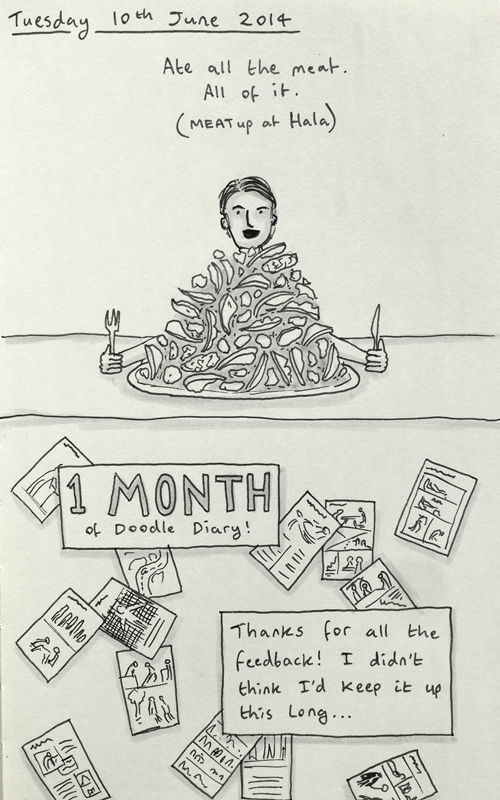 Tuesday 10th June 2014
Ate all the meat.
All of it.
(MEATup at Hala)
1 MONTH
of Doodle Diary!
Thanks for all the
feedback! I didn't
think I'd keep it up
this long...